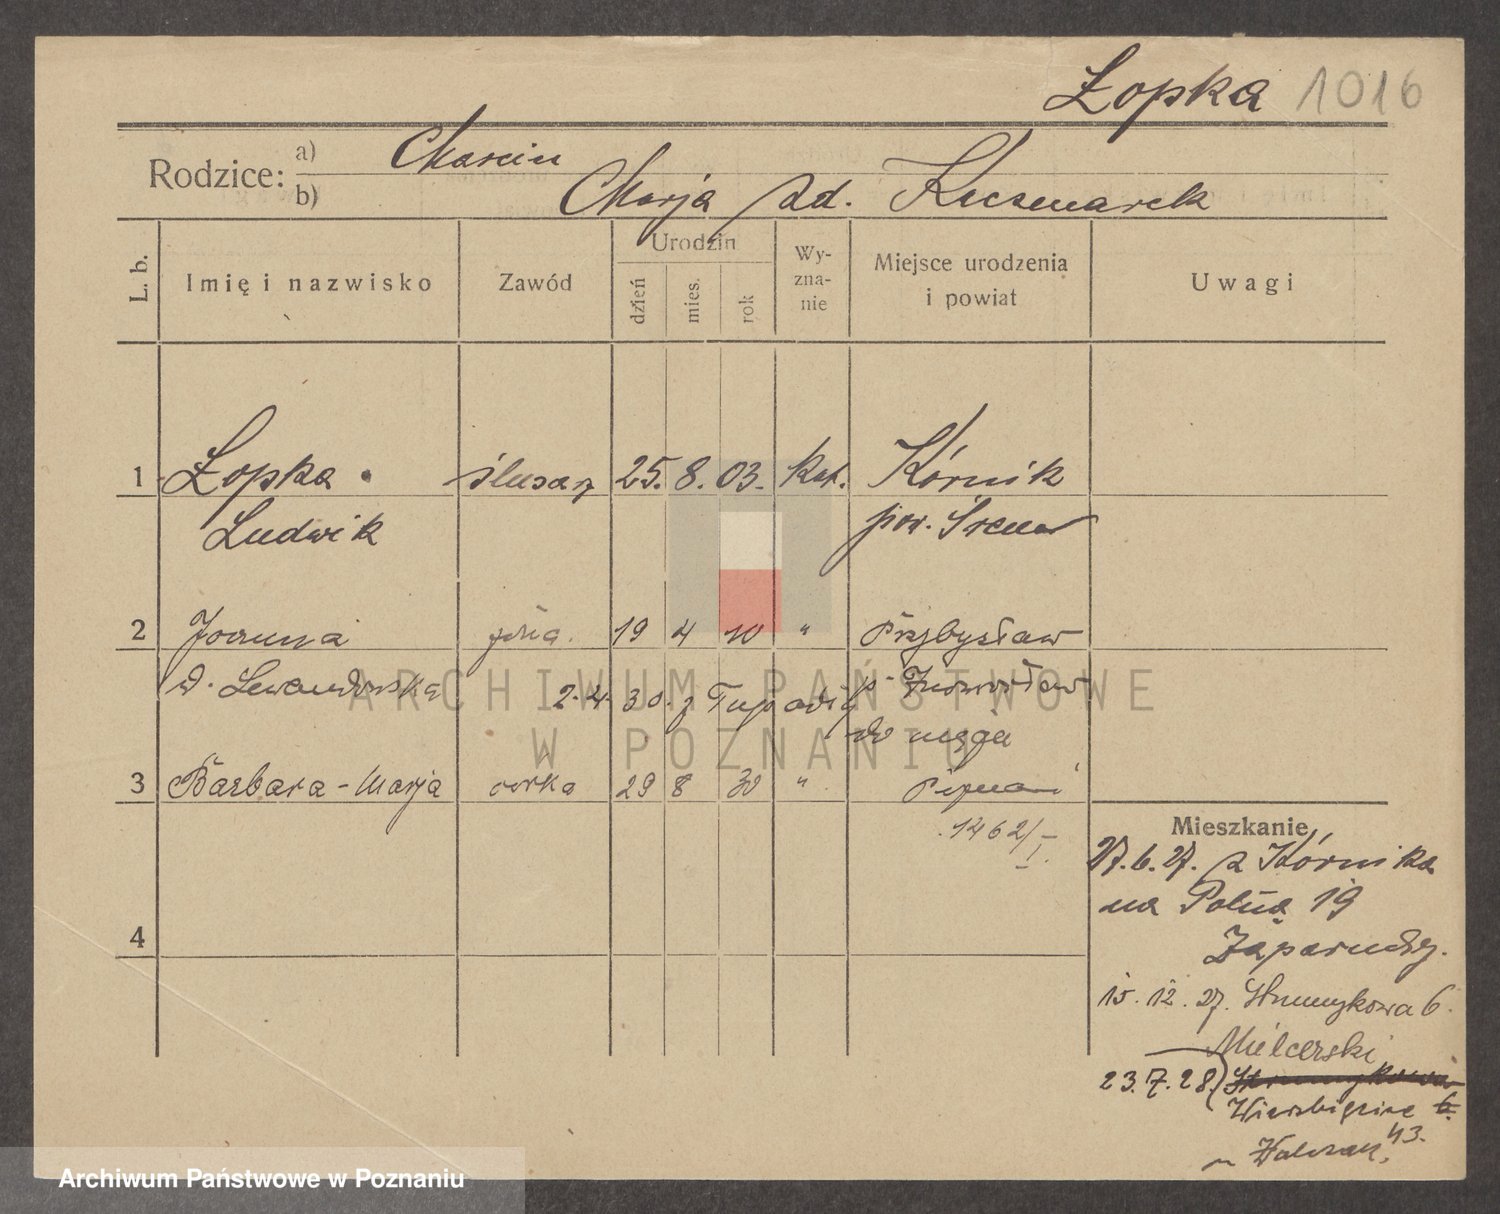 Łopka 1016
Rodzice: a) Marcin
b) Marja zd. Kaczmarek
L. b. Imię i nazwisko Zawód Urodzin dzień mies. rok Wy-zna-nie Miejsce urodzenia i powiat Uwagi
1 Łopka ślusarz 25. 8. 03. kat. Kórnik
Ludwik pow. Śrem
2 Joanna żona. 19 4 10 " Przybysław
d. Lewandowska p. Inowrocław
2.4.30. z Tupadły do męża
3 Barbara-Marja córka 29 8 30 " Poznań
1462/I.
Mieszkanie
27.6.27. z Kórnika
na Polną 19
15.12.27. Strumykowa 6.
Mielcerski
23.7.28. Strumykowa 6.
Wierzbięcice 43.
4
ARCHIWUM PAŃSTWOWE
W POZNANIU
Archiwum Państwowe w Poznaniu